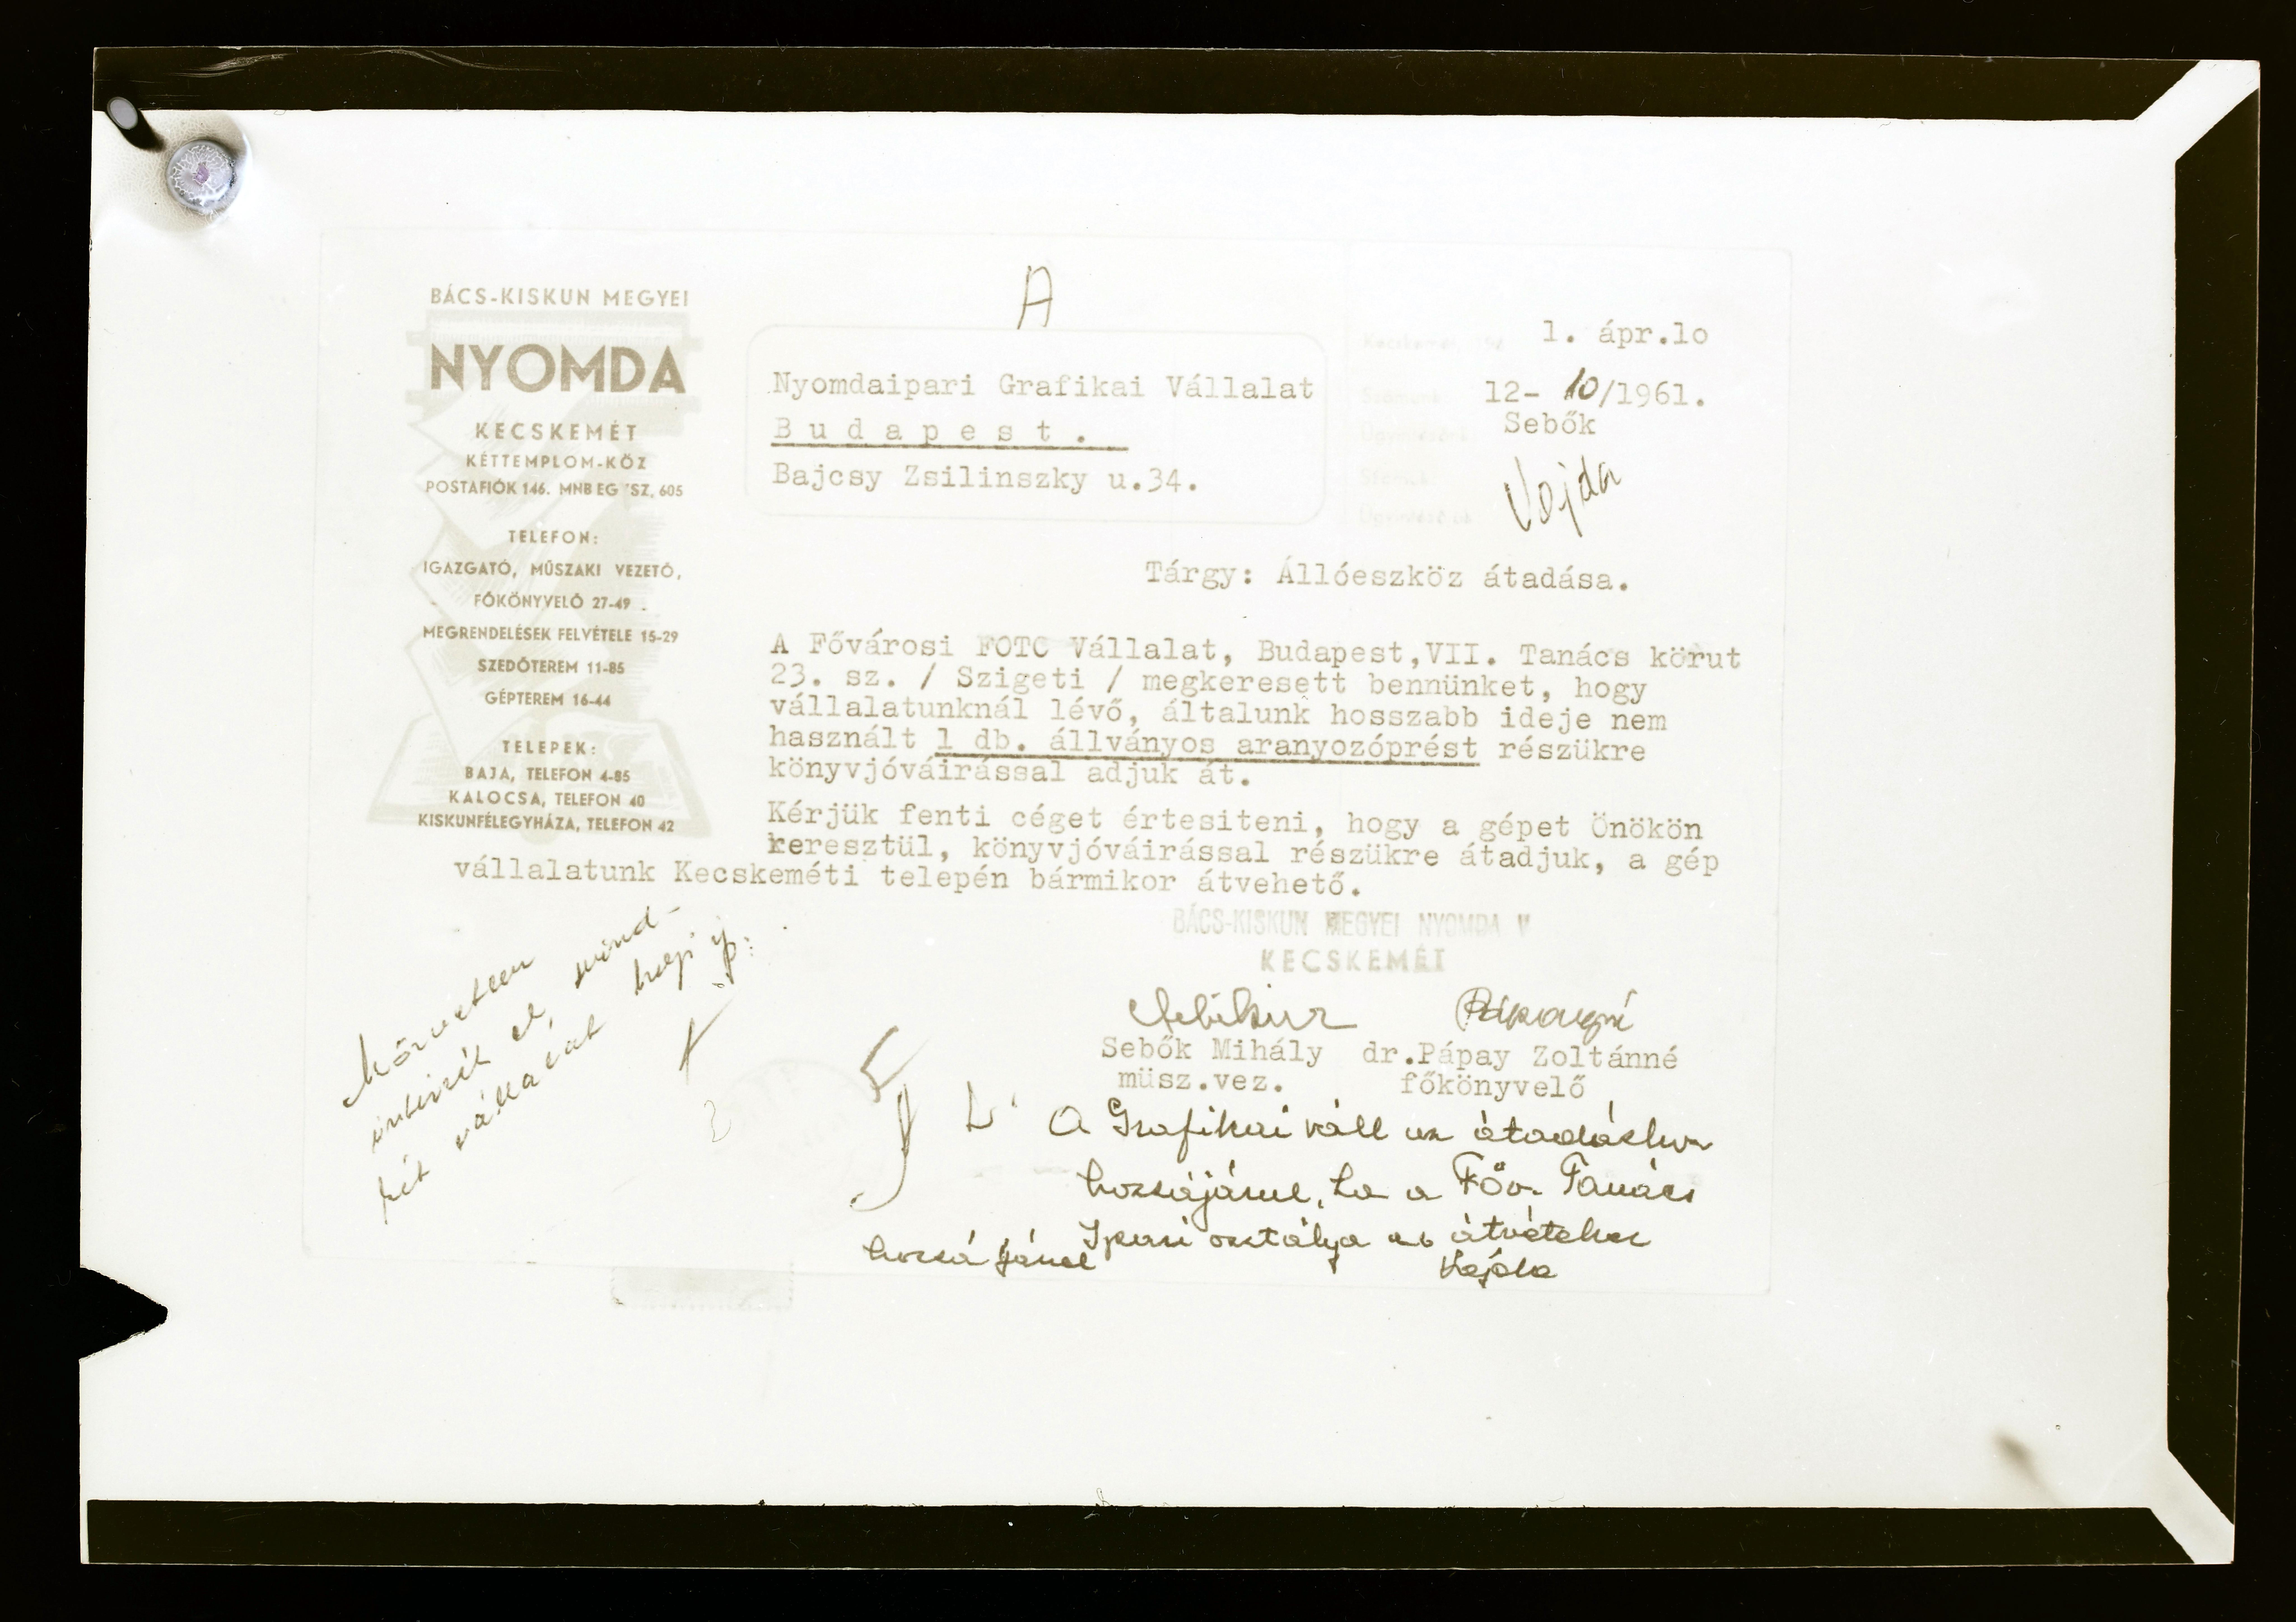 BÁCS-KISKUN MEGYEI
NYOMDA
KECSKEMÉT
KÉTTEMPLOM-KÖZ
POSTAFIÓK 146. MNB EG 'SZ. 605
TELEFON:
IGAZGATÓ, MŰSZAKI VEZETŐ,
FŐKÖNYVELŐ 27-49
MEGRENDELÉSEK FELVÉTELE 15-29
SZEDŐTEREM 11-85
GÉPTEREM 16-44
TELEPEK:
BAJA, TELEFON 4-85
KALOCSA, TELEFON 40
KISKUNFÉLEGYHÁZA, TELEFON 42
A
Nyomdaipari Grafikai Vállalat
Budapest.
Bajcsy Zsilinszky u.34.
Kecskemét, 196 1. ápr.lo
Számunk: 12- 10/1961.
Sebők
Vajda
Tárgy: Állóeszköz átadása.
A Fővárosi FOTO Vállalat, Budapest,VII. Tanács körut
23. sz. / Szigeti / megkeresett bennünket, hogy
vállalatunknál lévő, általunk hosszabb ideje nem
használt 1 db. állványos aranyozóprést részükre
könyvjóváirással adjuk át.
Kérjük fenti céget értesiteni, hogy a gépet Önökön
keresztül, könyvjóváirással részükre átadjuk, a gép
vállalatunk Kecskeméti telepén bármikor átvehető.
BÁCS-KISKUN MEGYEI NYOMDA V
KECSKEMÉT
Sebők Mihály dr.Pápay Zoltánné
müsz.vez. főkönyvelő
közvetlen
intézzék el, mind-
két vállalat helyi ip.
A Grafikai váll az átadáshoz
hozzájárul, ha a Főv. Tanács
Ipari osztálya az átvételhez
hozzájárul
Vajda